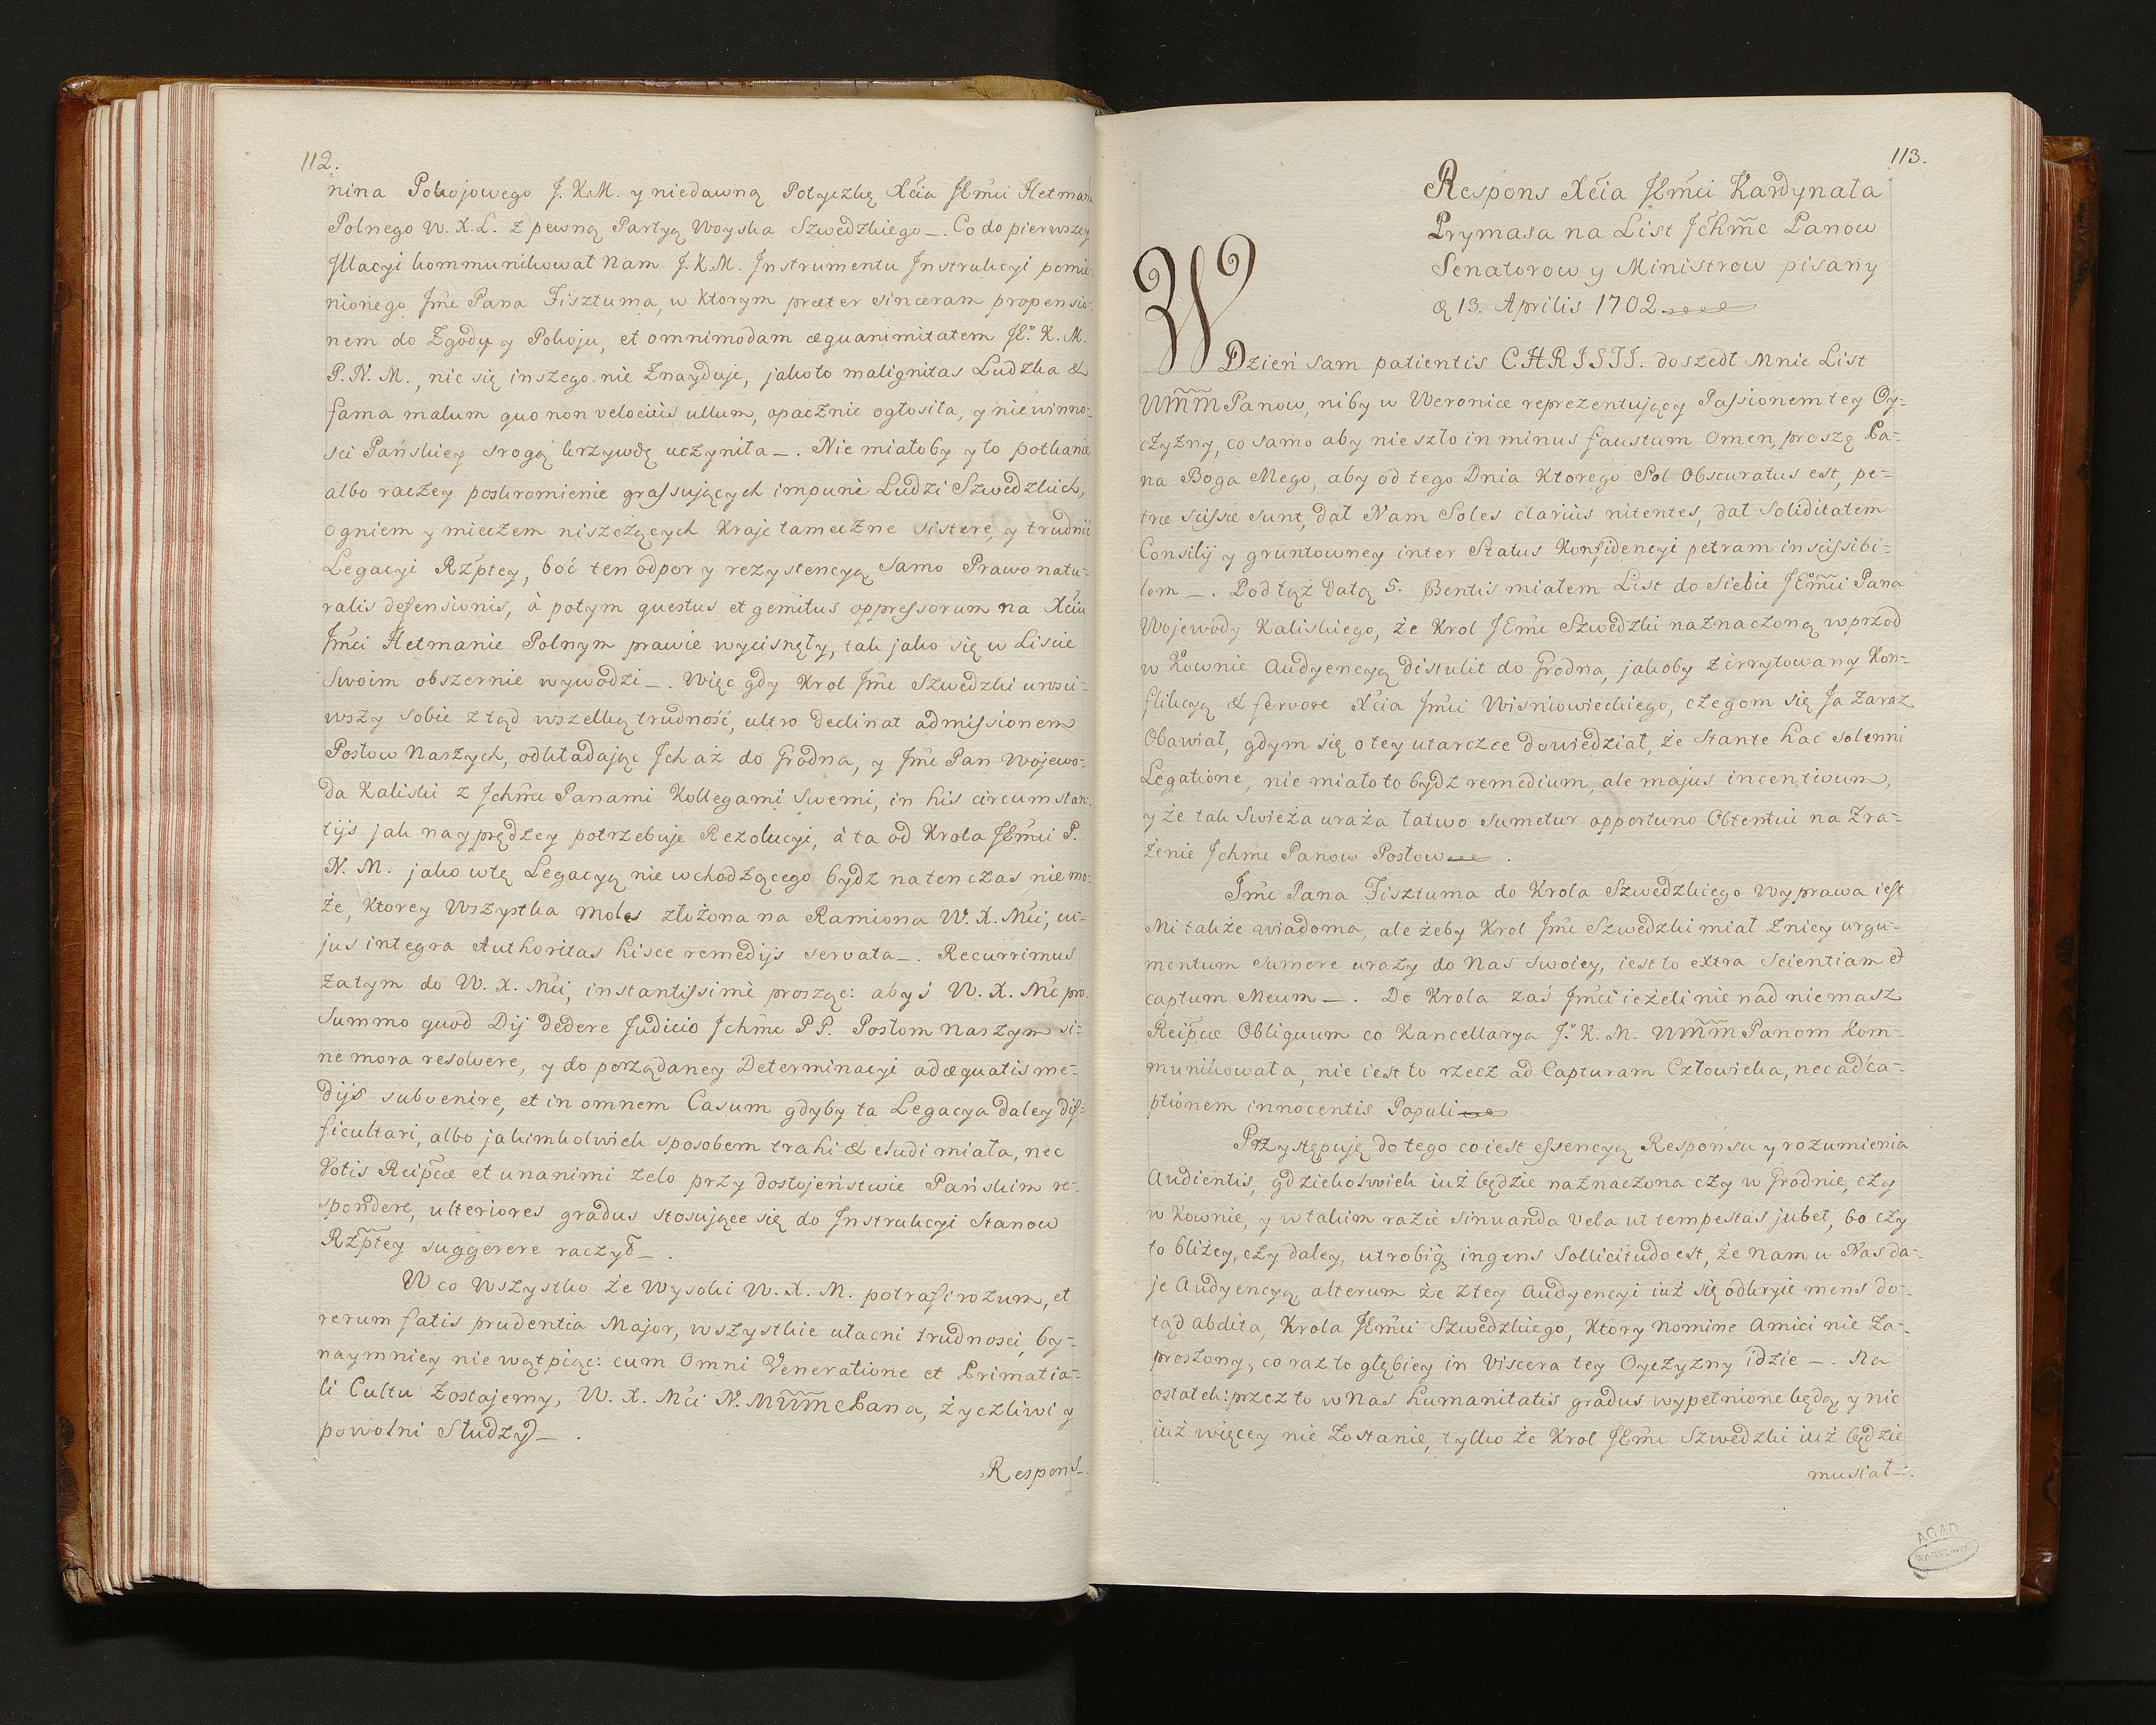 112.
nina Pokojowego J. K. M. y niedawną Potyczkę Xcia JEmci Hetmana
Polnego W. X. L. z pewną Partyą Woyska Szwedzkiego_. Co do pierwszey
Jllacyi kommunikował Nam J. K. M. Jnstrumentu Jnstrukcyi pomie-
nionego Jme Pana Fisztuma, w ktorym præter sinceram propensio-
nem do Zgody y Pokoju, et omnimodam æquanimitatem JEo. K. M.
P. N. M., nic się inszego nie Znayduje, jakoto malignitas Ludzka &
fama malum quo non velociùs ullum, opacznie ogłosiła, y niewinno-
sci Pańskiey srogą krzywdę uczyniła_. Nie miałoby y to potkanie
albo raczey poskromienie grassujących impunè Ludzi Szwedzkich,
ogniem y mieczem niszczących Kraje tameczne sistere, y trudnić
Legacyi Rzptey, boć ten odpor y rezystencyą samo Prawo natu-
ralis defensionis, à potym questus et gemitus oppressorum na Xciu
Jmci Hetmanie Polnym prawie wycisnęły, tak jako się w Liscie
Swoim obszernie wywodzi_. Więc gdy Krol Jme Szwedzki urosci-
wszy sobie z tąd wszelką trudność, ultro declinat admissionem
Posłow Naszych, odkładając Jch aż do Grodna, y Jme Pan Wojewo-
da Kaliski z Jchme Panami Kollegami Swemi, in his circumstan-
tijs jak nayprędzey potrzebuje Rezolucyi, à ta od Krola JEmci P.
N. M. jako wtę Legacyą nie wchodzącego bydz natenczas nie mo-
że, ktorey Wszystka moles złożona na Ramiona W. X. Mci; cu-
jus integra Authoritas hisce remedijs servata_. Recurrimus
zatym do W. X. Mci, instantissimè prosząc: abyś W. X. Mc pro
Summo quod Dij dedere Judicio Jchme PP. Posłom Naszym si-
ne mora resolvere, y do porządaney Determinacyi adæquatis me-
dijs subvenire, et in omnem Casum gdyby ta Legacya daley dif-
ficultari, albo jakimkolwiek sposobem trahi & eludi miała, nec
Votis Reipcæ et unanimi zelo przy dostojeństwie Pańskim re-
spondere, ulteriores gradus stosujące się do Jnstrukcyi Stanow
Rzptey suggerere raczył_.
W co Wszystko że Wysoki W. X. M. potrafi rozum, et
rerum satis prudentia Major, wszystkie ułacni trudnosci, by-
naymniey nie wątpiąc: cum Omni Veneratione et Primatia-
li Cultu Zostajemy, W. X. Mci N. MMM Pana, życzliwi y
powolni Słudzy_.
Respons_
113.
Respons Xcia JEmci Kardynała
Prymasa na List Jchmc Panow
Senatorow y Ministrow pisany
13. Aprilis 1702
W Dzień sam patientis CHRISTI. doszedł Mnie List
WMM Panow, niby w Weronice reprezentujący Passionem tey Oy-
czyzny, co samo aby nie szło in minus faustum Omen, proszę Pa-
na Boga Mego, aby od tego Dnia Ktorego Sol Obscuratus est, pe-
træ scissæ sunt, dał Nam Soles clariùs nitentes, dał Soliditatem
Consilij y gruntowney inter Status Konfidencyi petram inscissibi-
lem_. Pod tąż datą 5. Bentis miałem List do Siebie JEmci Pana
Wojewody Kaliskiego, że Krol JEme Szwedzki naznaczoną wprzod
w Kownie Audyencyą distulit do Grodna, jakoby zirrytowany Kon-
fliktcyą & fervore Xcia Jmci Wisniowieckiego, czegom się Ja Zaraz
Obawiał, gdym się otey utarczce dowiedział, że Stante hac solenni
Legatione, nie miało to bydz remedium, ale majus incentivum,
y że tak Swieża uraza łatwo sumetur opportuno Obtentui na Zra-
żenie Jchme Panow Posłow.
Jme Pana Fisztuma do Krola Szwedzkiego Wyprawa iest
Mi także wiadoma, ale żeby Krol Jme Szwedzki miał Zniey argu-
mentum sumere urazy do Nas swoiey, iest to extra Scientiam et
captum Meum_. Do Krola zaś Jmci ieżeli nie nad nie masz
Reipcæ Obliquum co Kancellarya J. K. M. WMM Panom Kom-
munikowała, nie iest to rzecz ad Capturam Człowieka, nec ad ca-
ptionem innocentis Populi
Przystępuję do tego co iest essencyą Responsu y rozumienia
Audientis, gdziekolwiek iuż będzie naznaczona czy w Grodnie, czy
w Kownie, y w takim razie sinuanda Vela ut tempestas jubet, bo czy
to bliżey, czy daley, utrobiq; ingens Sollicitudo est, że nam u Nas da-
je Audyencyą, alterum że ztey Audyencyi iuż się odkryie mens do-
tąd abdita, Krola JEmci Szwedzkiego, Ktory Nomine Amici nie Za-
proszony, coraz to głębiey in Viscera tey Oyczyzny idzie_. Na
ostatek: przez to w Nas humanitatis gradus wypełnione będą, y nic
iuż więcey nie Zostanie, tylko że Krol JEme Szwedzki iuż będzie
musiał_.
AGAD
WARSZAWA